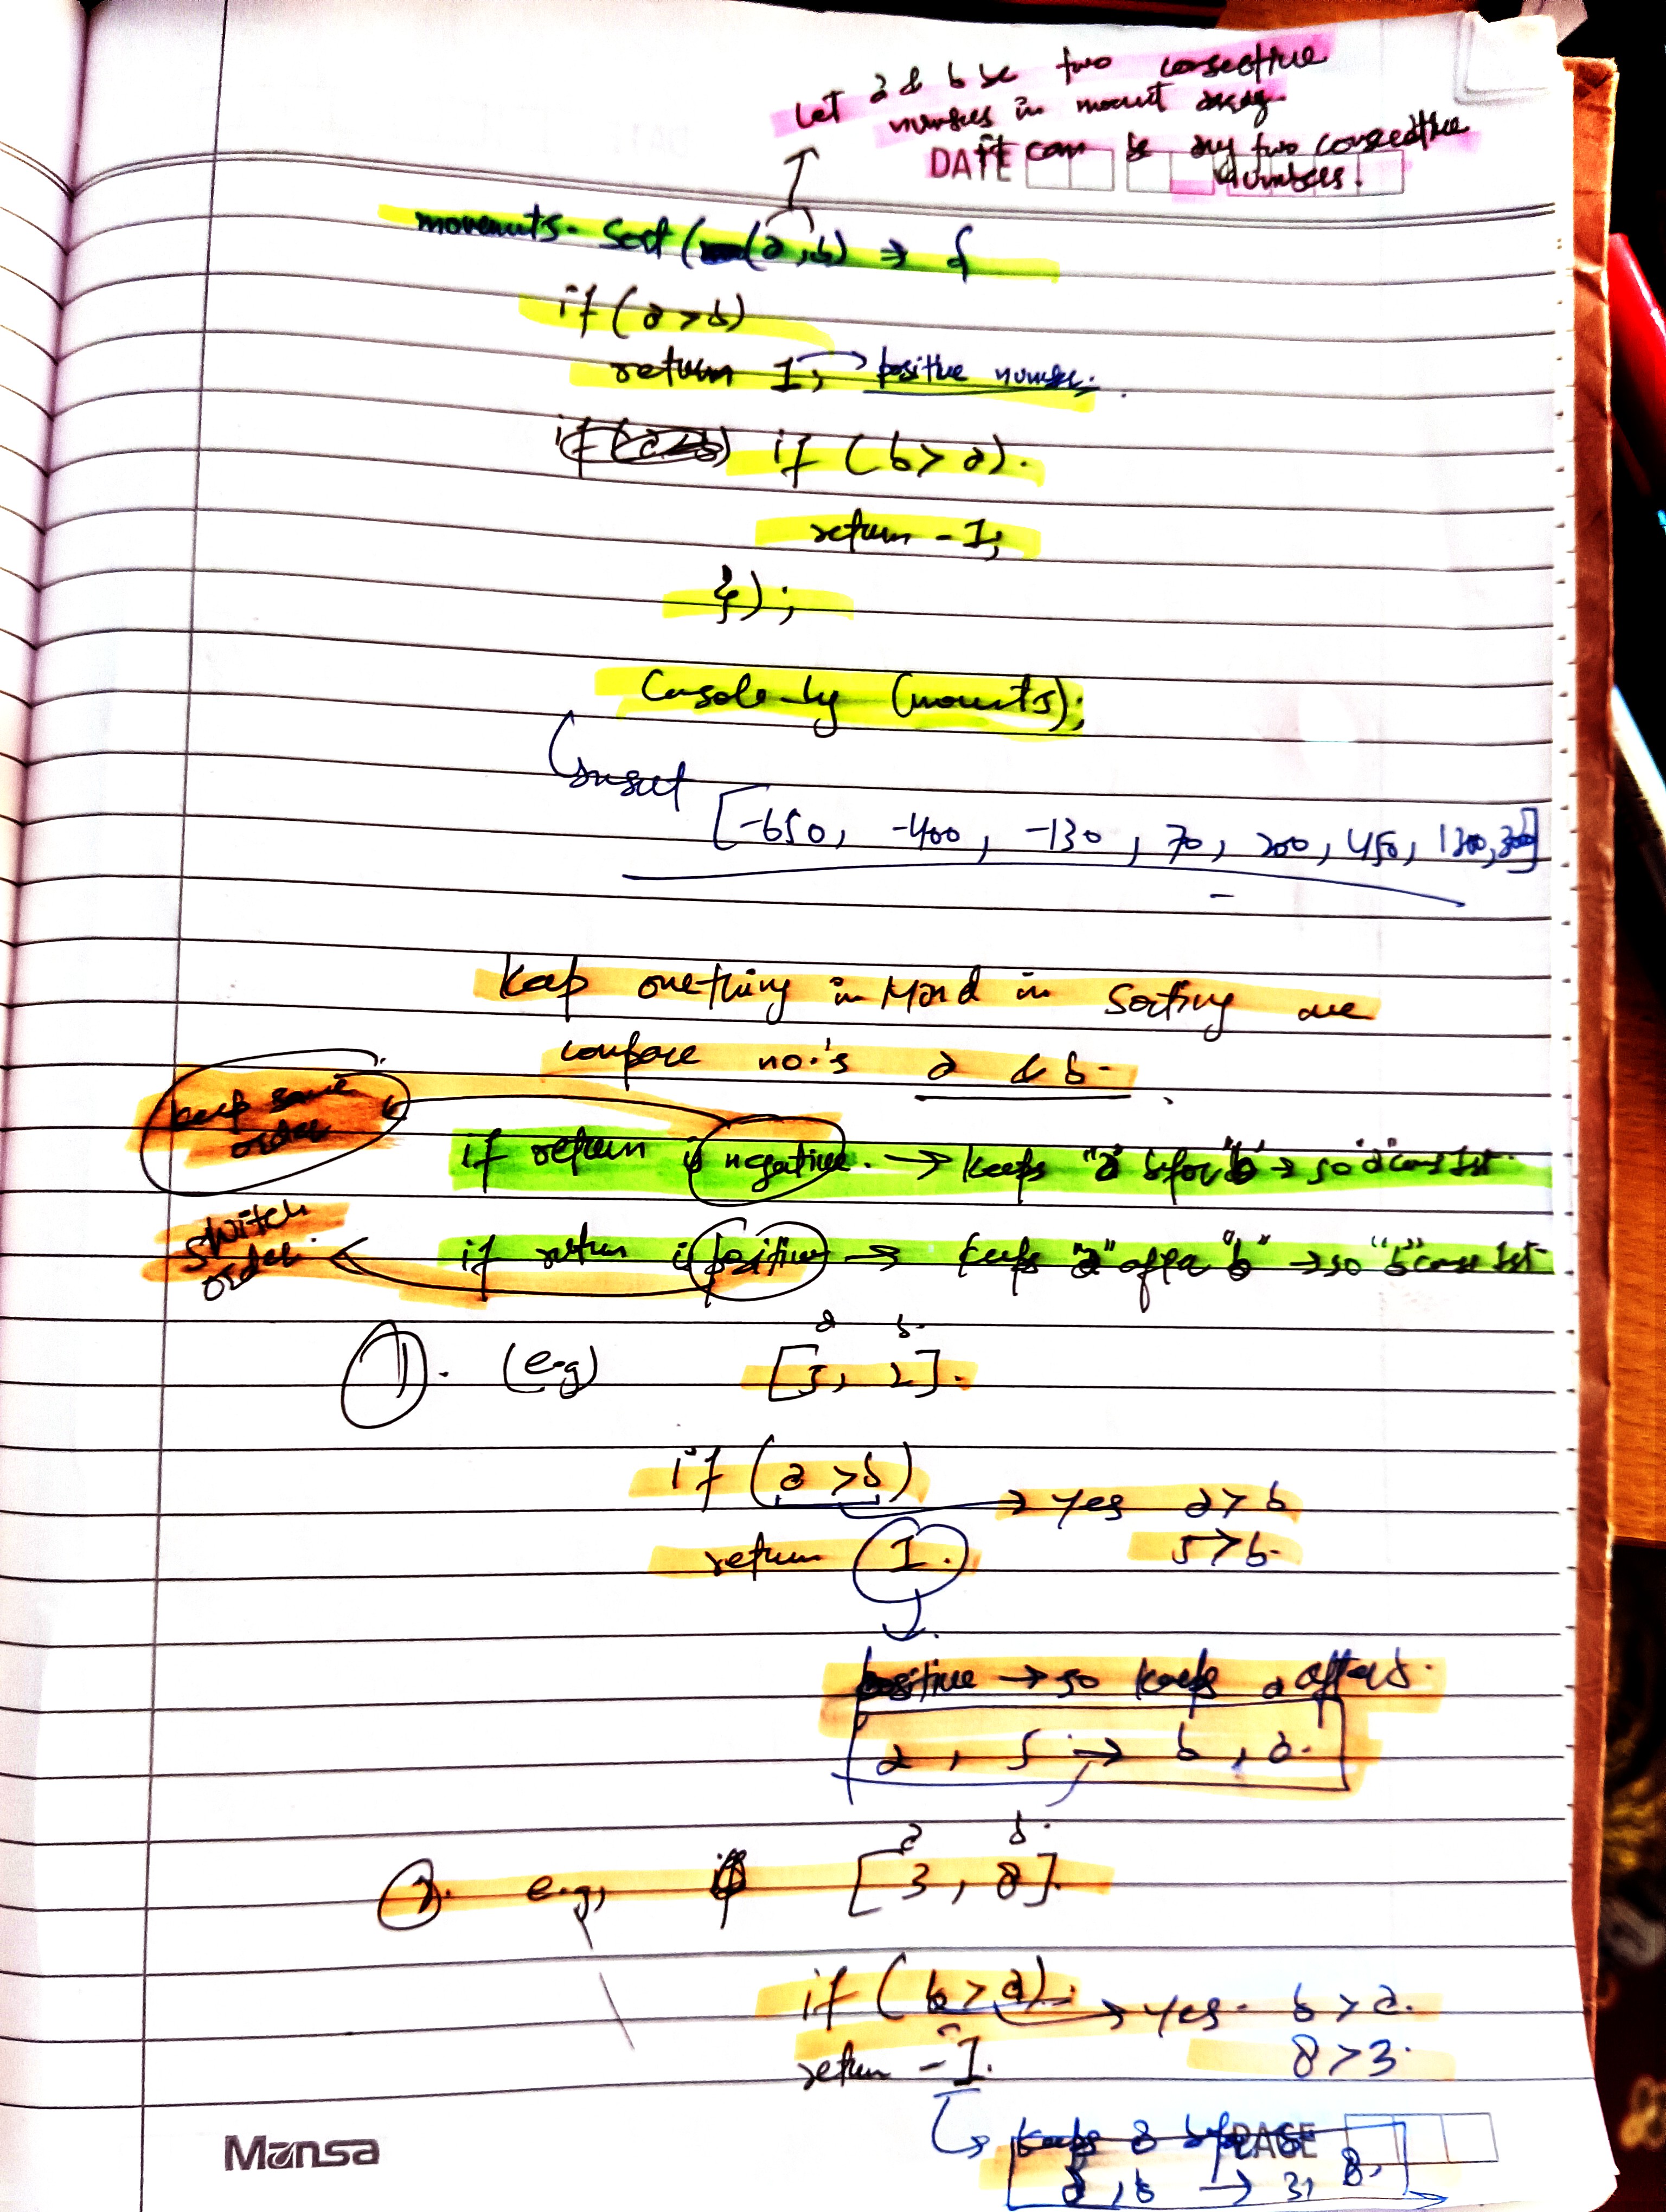 Let a & b be two consective
numbers in movemt array.
it can be any two consective
numbers.
DATE
movements.sort((a,b) => {
if (a > b)
return 1; → positive number.
if (b > a).
return -1;
});
Console.log (movemts);
[-650, -400, -130, 70, 200, 450, 1300, 3000]
Keep onething in Mind in Sorting we
compare no.'s a & b.
keep same
order
if return is negative. → keeps "a" before "b" → so "a" comes 1st.
switch
order.
if return is positive → keeps "a" after "b" → so "b" comes 1st
1. (e.g)
a b.
[5, 2].
if (a > b) → yes a > b
return 1. 5 > b.
positive → so keeps a after b.
2, 5 → b, a.
2. e.g, if
a b.
[3, 8].
if (b > a). → yes. b > a.
return -1. 8 > 3.
keeps a before
a, b → 3, 8,
PAGE
Mansa